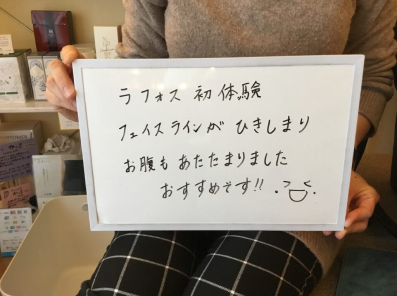 ラフォス 初体験
フェイスラインが ひきしまり
お腹も あたたまりました
おすすめです!!